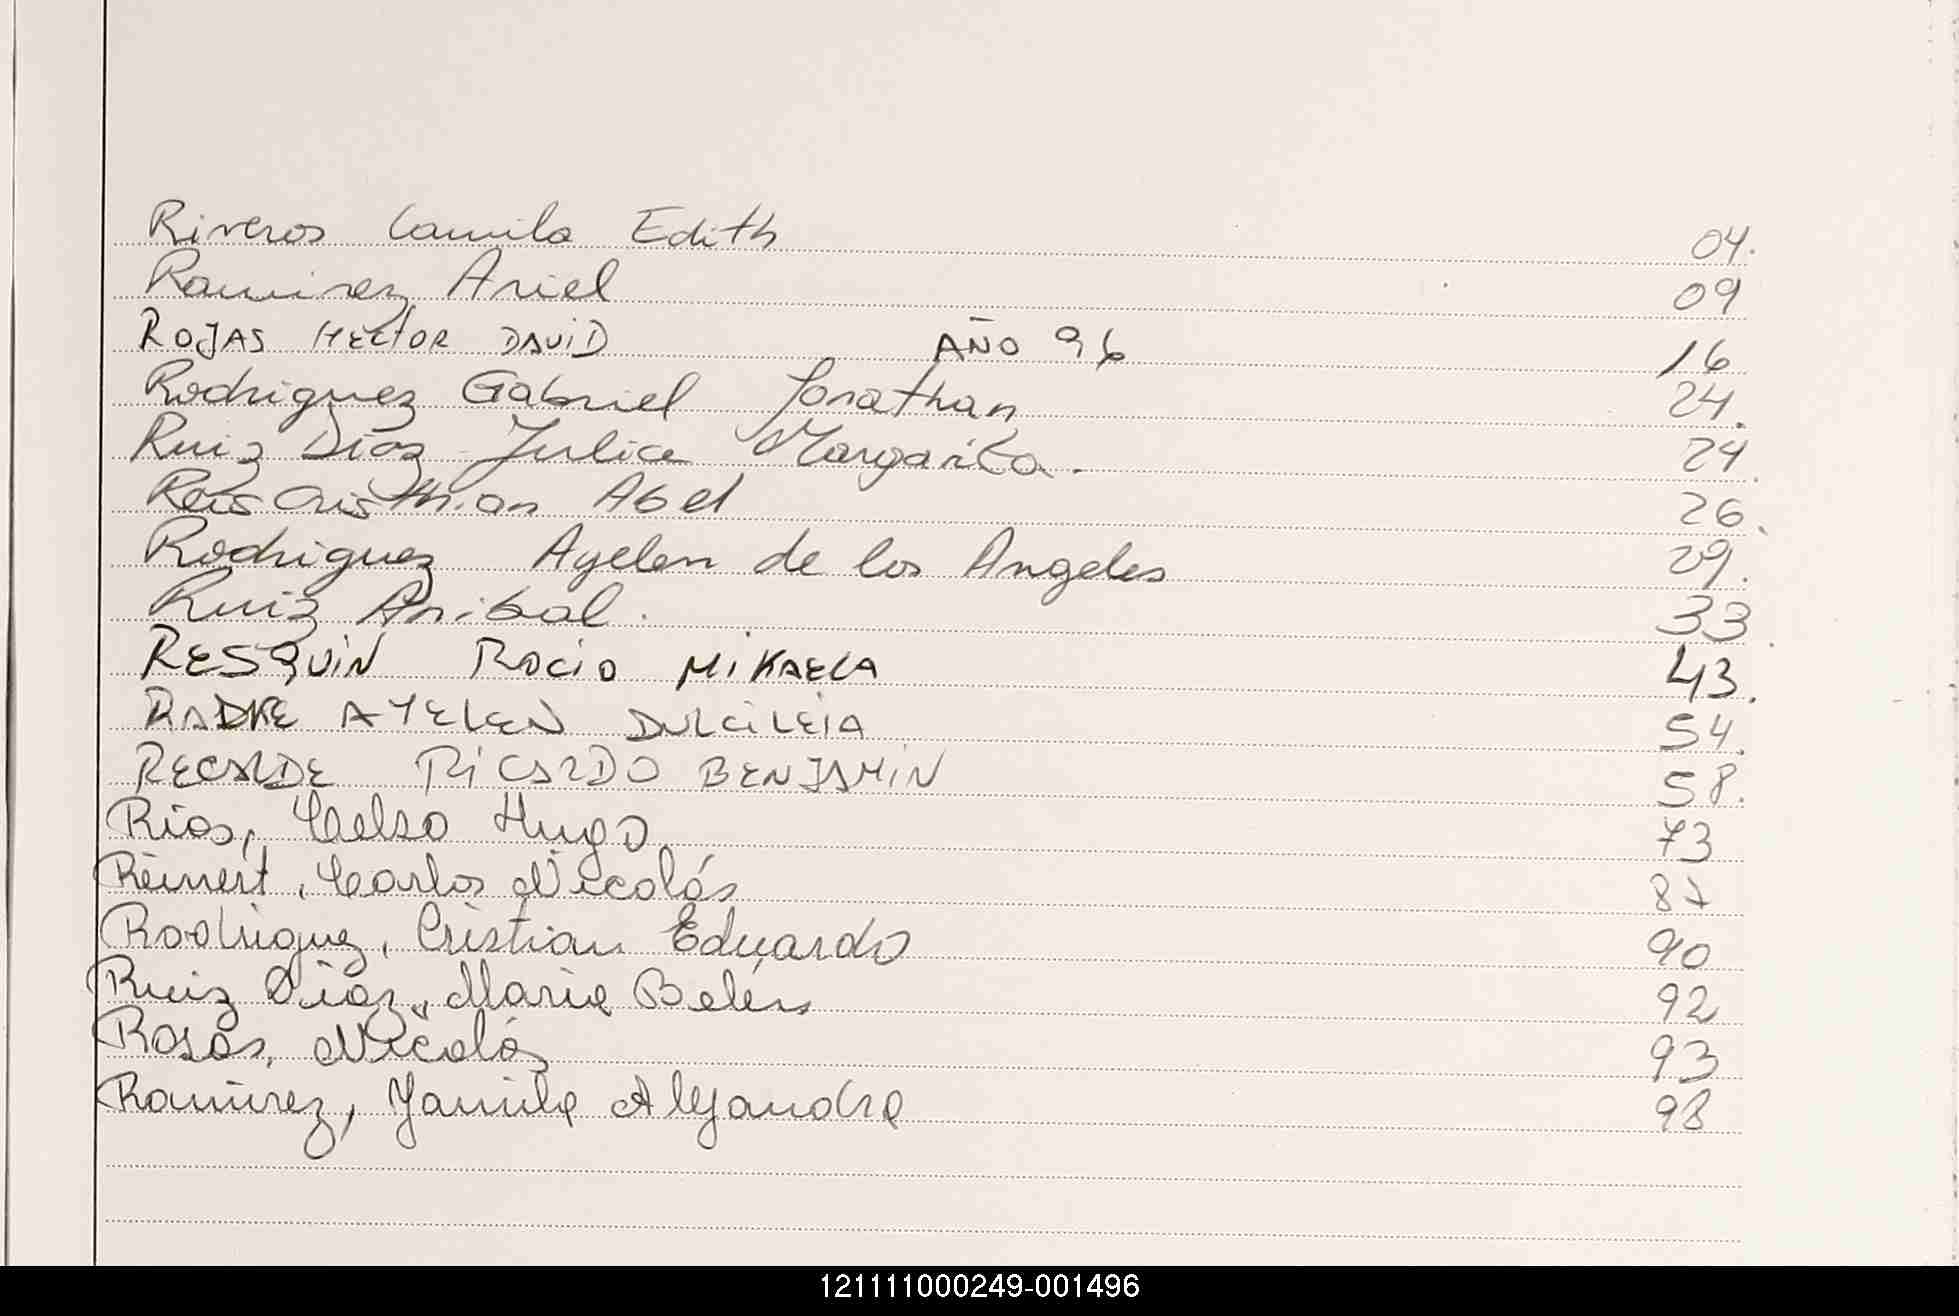 Riveros Camila Edith 04.
Ramirez Ariel 09
ROJAS HECTOR DAVID AÑO 96 16
Rodriguez Gabriel Jonathan 24.
Ruiz Diaz Julica Margarita. 24
Reis Cristhian Abel 26.
Rodriguez Ayelen de los Angeles 29.
Ruiz Anibal. 33
RESQUIN ROCIO MIKAELA 43.
RADKE AYELEN DULCILEIA 54.
RECALDE RICARDO BENJAMIN 58.
Rios, Celso Hugo 73
Reinert, Carlos Nicolás 87
Rodriguez, Cristian Eduardo 90
Ruiz Diaz, Maria Belén 92
Rosas, Nicolás 93
Ramirez, Yamila Alejandra 98
121111000249-001496